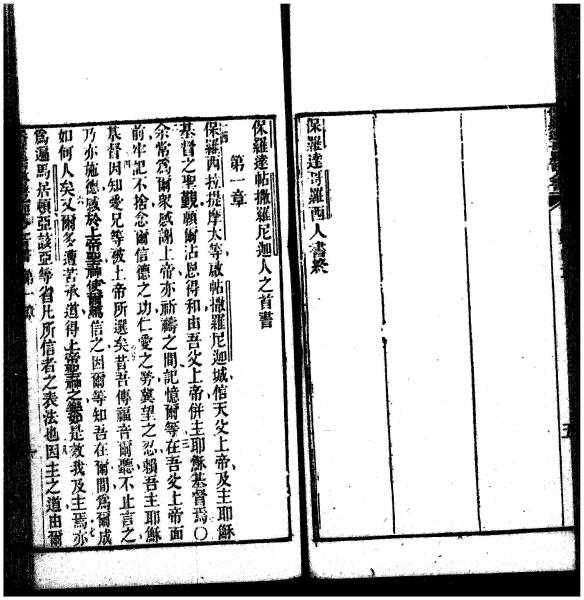 保羅達哥羅西人書終
五
保羅達帖撒羅尼迦人之首書
第一章
保羅西拉提摩太等啟帖撒羅尼迦城信天父上帝及主耶穌
基督之聖 願爾沾恩得和由吾父上帝併主耶穌基督焉〇
余常為爾眾感謝上帝亦祈禱之間記憶爾等在吾父上帝面
前牢記不捨念爾信德之功仁愛之勞冀望之忍賴吾主耶穌
基督因知愛兄等被上帝所選矣昔吾傳福音爾聽不止言之
乃亦施德感於上帝聖神使爾 信之因爾等知吾在爾間為爾成
如何人矣又爾多遭苦承道得上帝聖神之 是效我及主焉亦
為遍馬居頓亞該亞等省凡所信者之表法也因主之道由爾
第一章